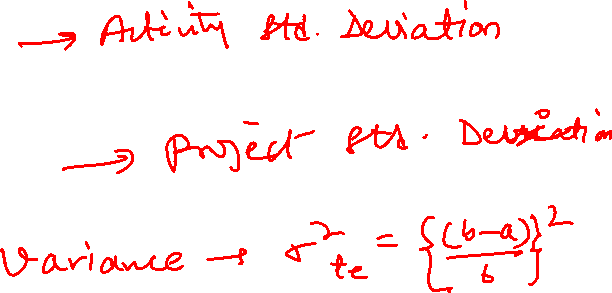 → Activity Std. Deviation
→ Project Std. Deviation
Variance → σ²te = {(b-a)/6}²